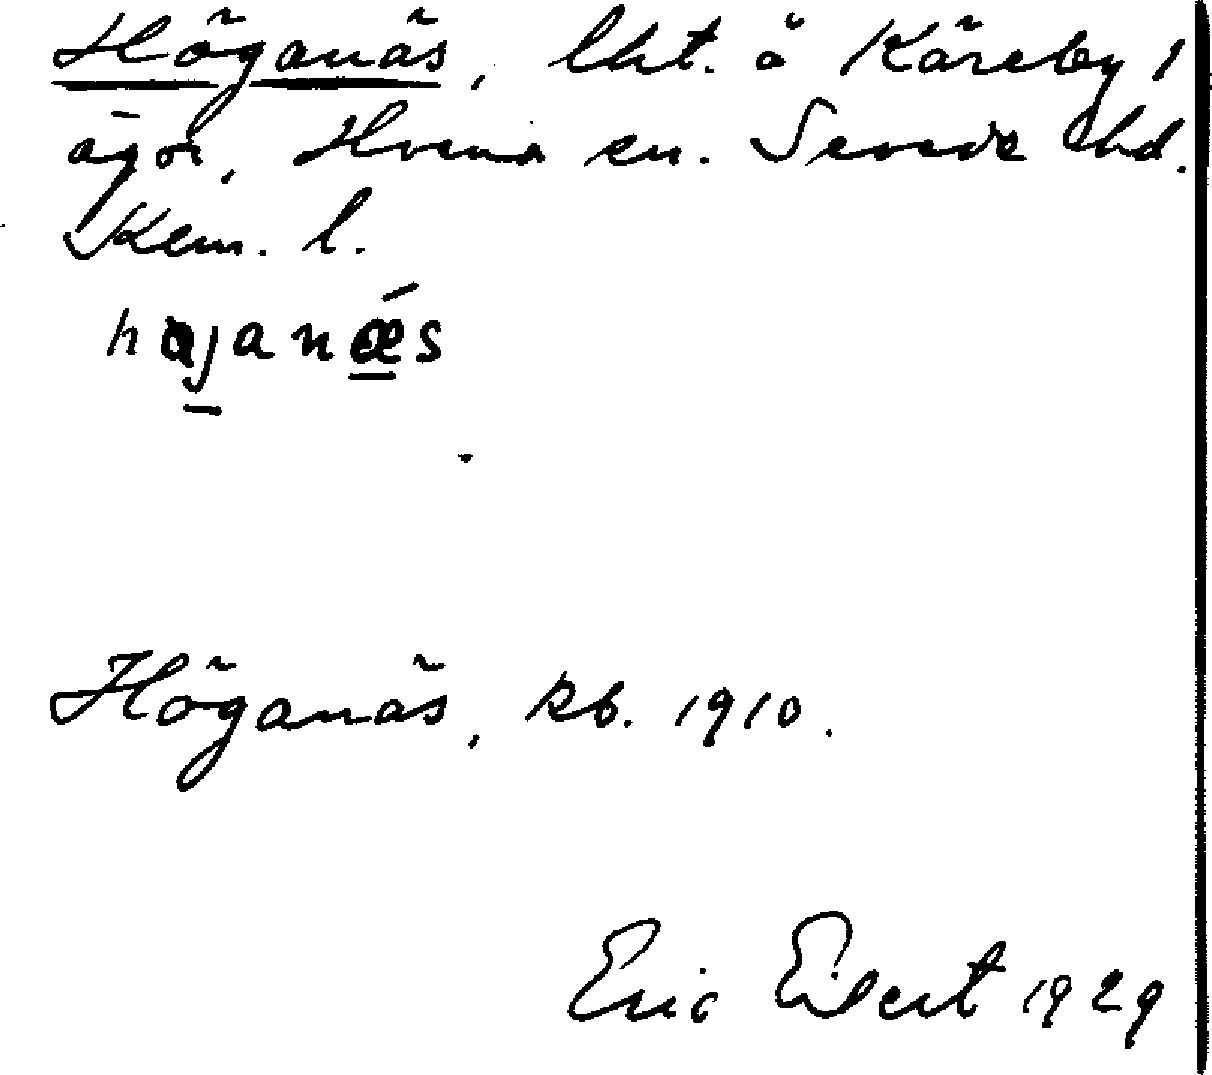 Höganäs, lht. å Käreby 1
ägor, Hvena sn. Sevede hd.
Kalm. l.
højanæ̲s
Höganäs, kb. 1910.
Eric Eilert 1929